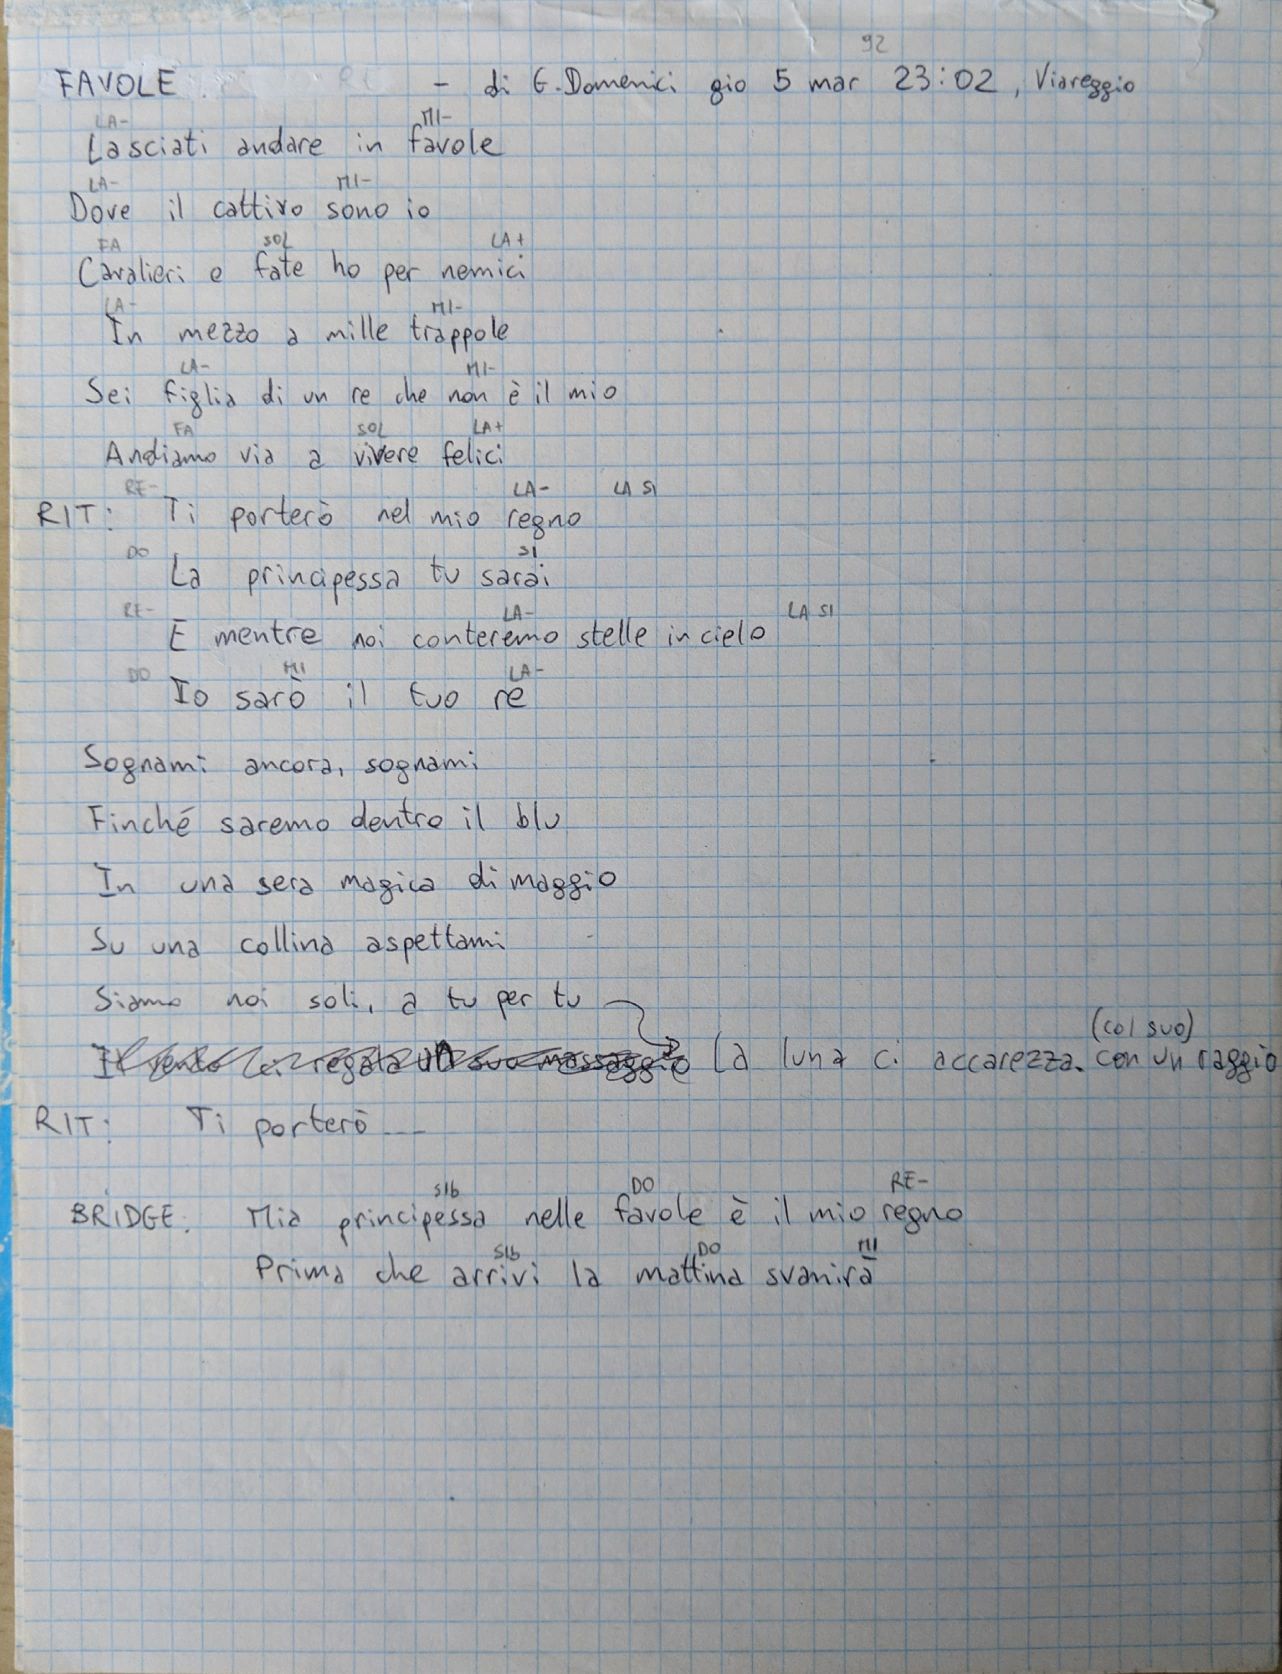 92
FAVOLE - di G. Domenici gio 5 mar 23:02, Viareggio
LA- MI-
Lasciati andare in favole
LA- MI-
Dove il cattivo sono io
FA SOL LA+
Cavalieri e fate ho per nemici
LA- MI-
In mezzo a mille trappole
LA- MI-
Sei figlia di un re che non è il mio
FA SOL LA+
Andiamo via a vivere felici
RE- LA- LA SI
RIT: Ti porterò nel mio regno
DO SI
La principessa tu sarai
RE- LA- LA SI
E mentre noi conteremo stelle in cielo
DO MI LA-
Io sarò il tuo re
Sognami ancora, sognami
Finché saremo dentro il blu
In una sera magica di maggio
Su una collina aspettami
Siamo noi soli, a tu per tu
(col suo)
Il vento ci regala un suo massaggio La luna ci accarezza con un raggio
RIT: Ti porterò ---
SIb DO RE-
BRIDGE: Mia principessa nelle favole è il mio regno
SIb DO MI
Prima che arrivi la mattina svanirà